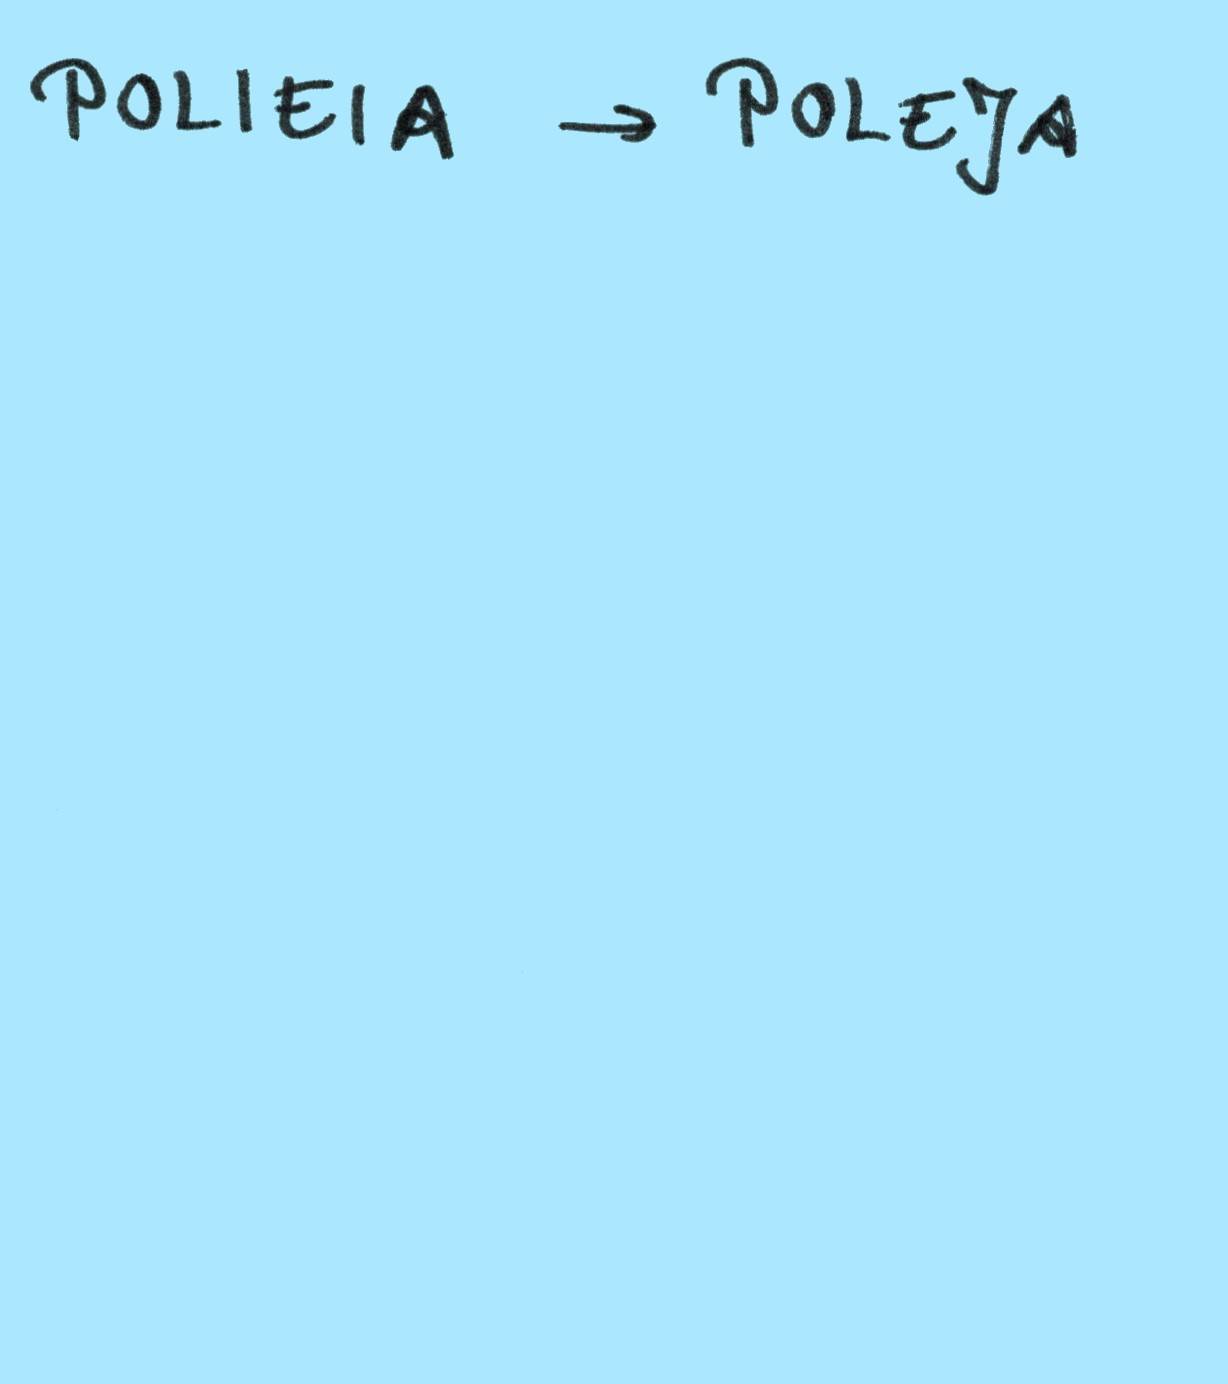 POLIEIA → POLEJA